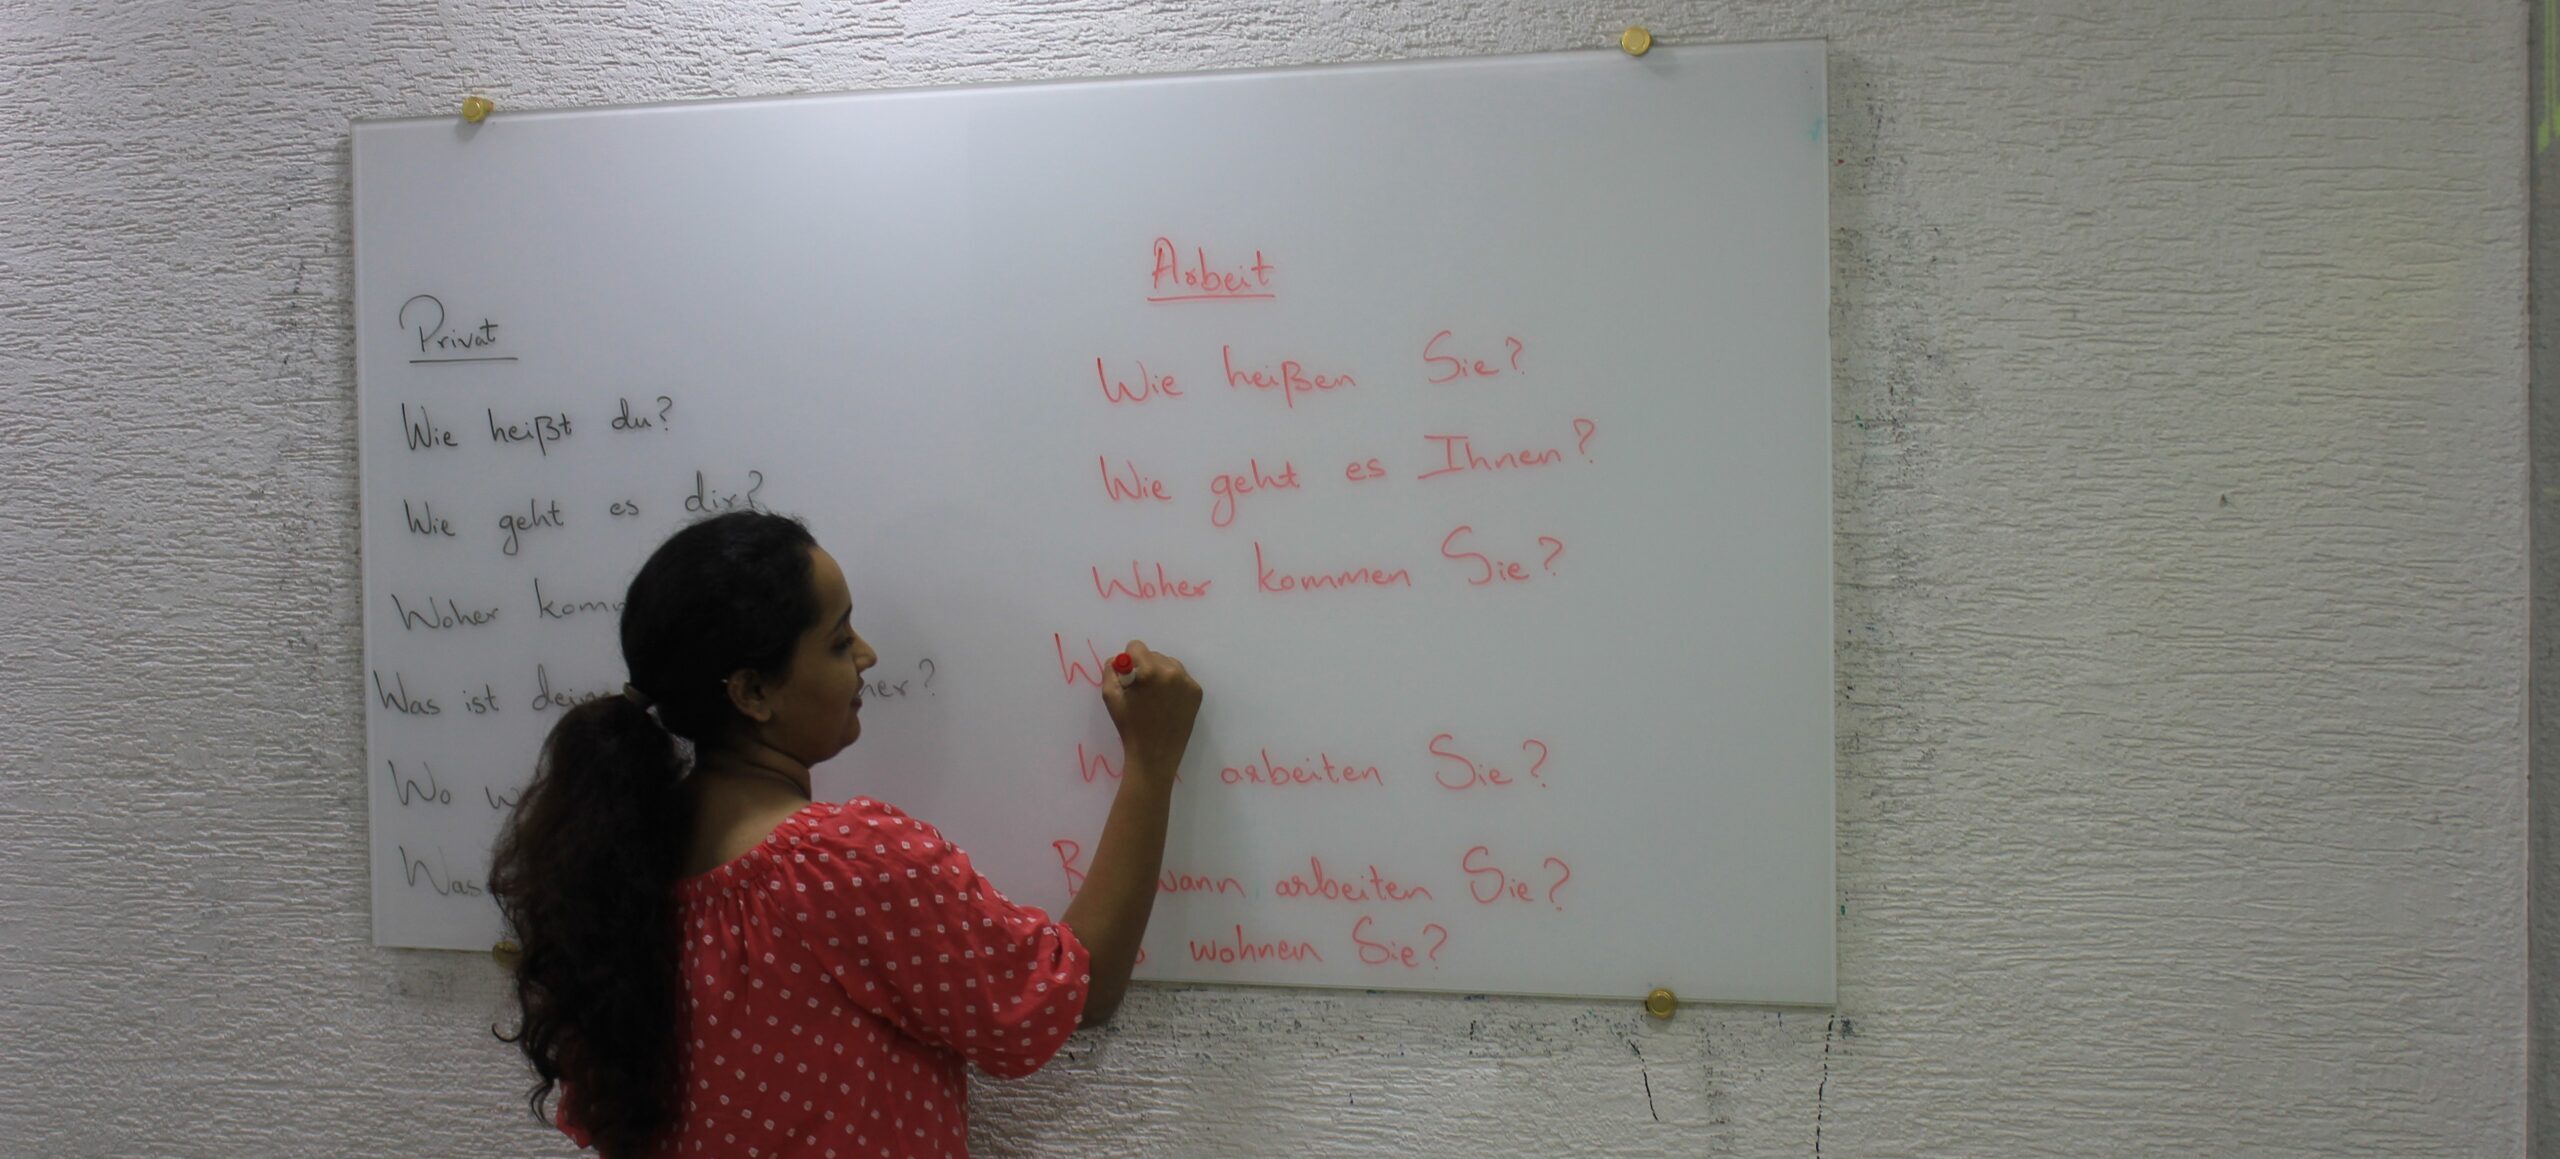 Privat
Wie heißt du?
Wie geht es dir?
Woher
Was ist ?
Wo
Was
Arbeit
Wie heißen Sie?
Wie geht es Ihnen?
Woher kommen Sie?
arbeiten Sie?
arbeiten Sie?
wohnen Sie?